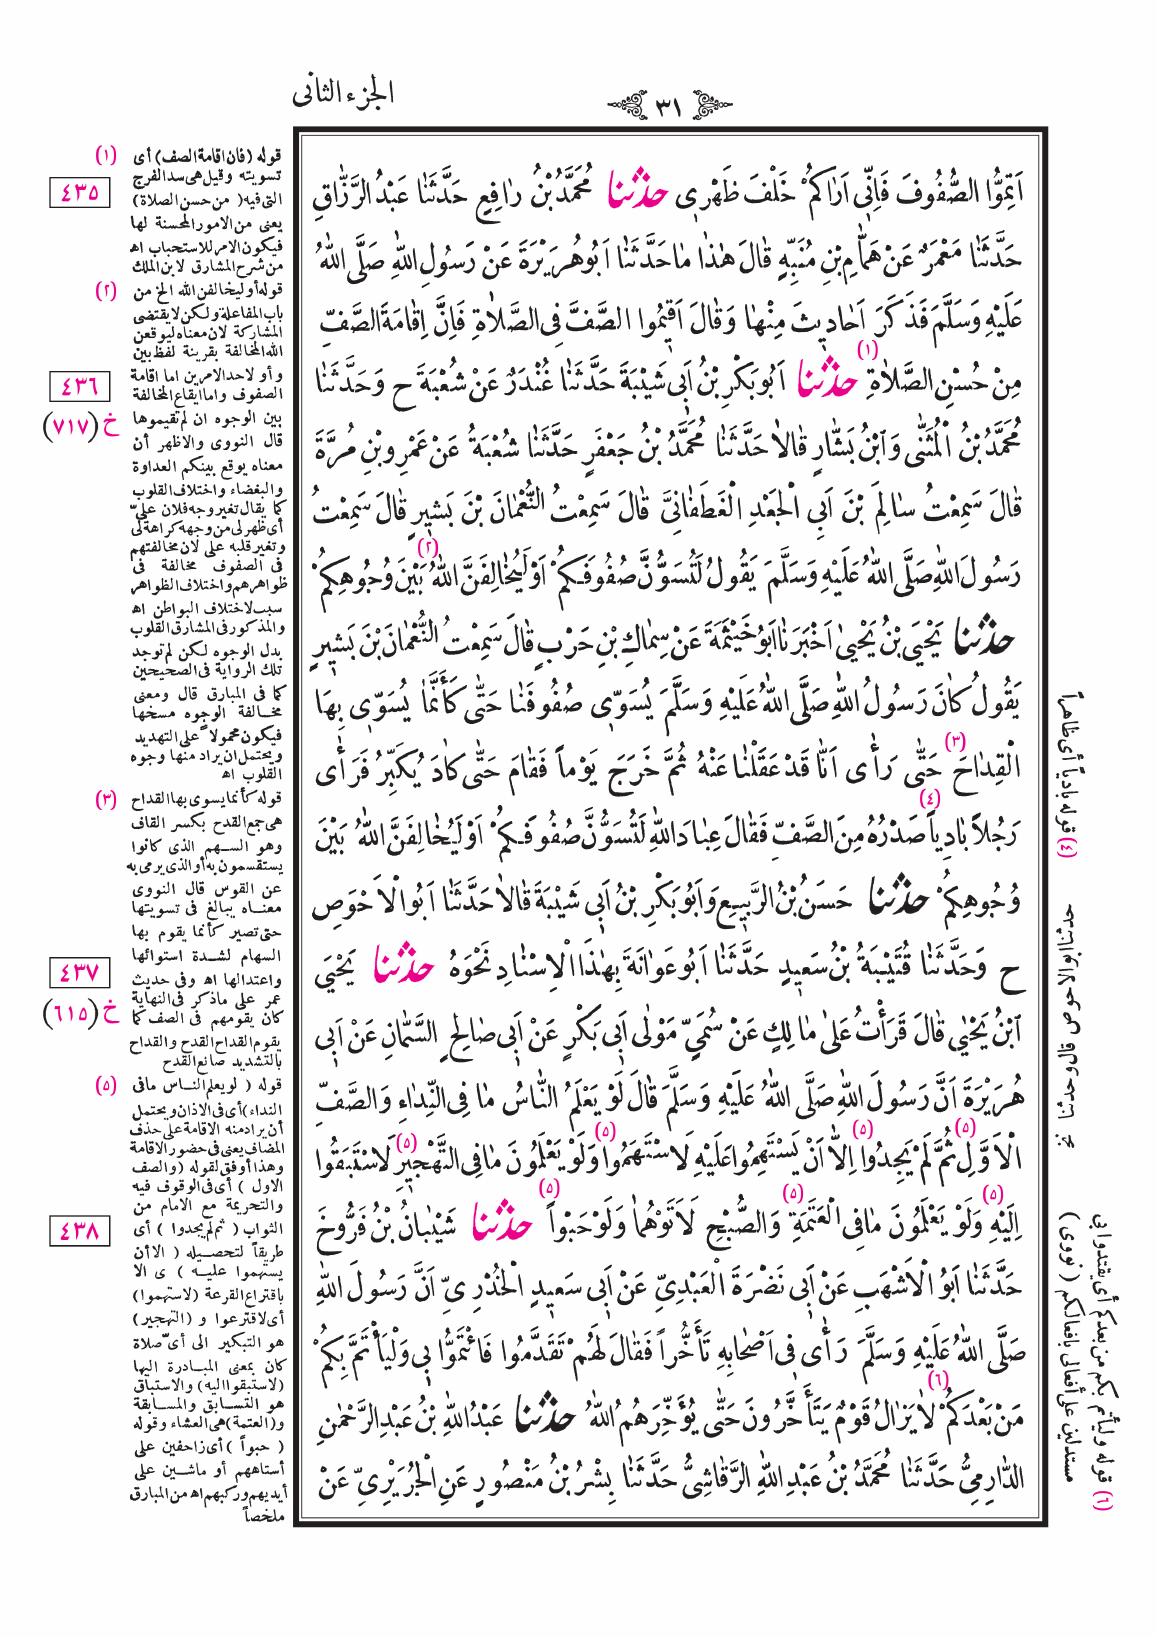 ٣١
الجزء الثانى
اَتِمُّوا الصُّفُوفَ فَاِنِّى اَرَاكُمْ خَلْفَ ظَهْرِى حَدَّثَنَا مُحَمَّدُ بْنُ رَافِعٍ حَدَّثَنَا عَبْدُ الرَّزَّاقِ
حَدَّثَنَا مَعْمَرٌ عَنْ هَمَّامِ بْنِ مُنَبِّهٍ قَالَ هٰذَا مَا حَدَّثَنَا اَبُو هُرَيْرَةَ عَنْ رَسُولِ اللهِ صَلَّى اللهُ
عَلَيْهِ وَسَلَّمَ فَذَكَرَ اَحَادِيثَ مِنْهَا وَقَالَ اَقِيمُوا الصَّفَّ فِى الصَّلَاةِ فَاِنَّ اِقَامَةَ الصَّفِّ
مِنْ حُسْنِ الصَّلَاةِ (١) حَدَّثَنَا اَبُو بَكْرِ بْنُ اَبِى شَيْبَةَ حَدَّثَنَا غُنْدَرٌ عَنْ شُعْبَةَ ح وَحَدَّثَنَا
مُحَمَّدُ بْنُ الْمُثَنَّى وَابْنُ بَشَّارٍ قَالَا حَدَّثَنَا مُحَمَّدُ بْنُ جَعْفَرٍ حَدَّثَنَا شُعْبَةُ عَنْ عَمْرِو بْنِ مُرَّةَ
قَالَ سَمِعْتُ سَالِمَ بْنَ اَبِى الْجَعْدِ الْغَطَفَانِىَّ قَالَ سَمِعْتُ النُّعْمَانَ بْنَ بَشِيرٍ قَالَ سَمِعْتُ
رَسُولَ اللهِ صَلَّى اللهُ عَلَيْهِ وَسَلَّمَ يَقُولُ لَتُسَوُّنَّ صُفُوفَكُمْ اَوْ لَيُخَالِفَنَّ اللهُ (٢) بَيْنَ وُجُوهِكُمْ
حَدَّثَنَا يَحْيَى بْنُ يَحْيٰى اَخْبَرَنَا اَبُو خَيْثَمَةَ عَنْ سِمَاكِ بْنِ حَرْبٍ قَالَ سَمِعْتُ النُّعْمَانَ بْنَ بَشِيرٍ
يَقُولُ كَانَ رَسُولُ اللهِ صَلَّى اللهُ عَلَيْهِ وَسَلَّمَ يُسَوِّى صُفُوفَنَا حَتَّى كَأَنَّمَا يُسَوِّى بِهَا
الْقِدَاحَ (٣) حَتَّى رَأٰى اَنَّا قَدْ عَقَلْنَا عَنْهُ ثُمَّ خَرَجَ يَوْماً فَقَامَ حَتَّى كَادَ يُكَبِّرُ فَرَأٰى
رَجُلاً بَادِياً (٤) صَدْرُهُ مِنَ الصَّفِّ فَقَالَ عِبَادَ اللهِ لَتُسَوُّنَّ صُفُوفَكُمْ اَوْ لَيُخَالِفَنَّ اللهُ بَيْنَ
وُجُوهِكُمْ حَدَّثَنَا حَسَنُ بْنُ الرَّبِيعِ وَاَبُو بَكْرِ بْنُ اَبِى شَيْبَةَ قَالَا حَدَّثَنَا اَبُو الْاَحْوَصِ
ح وَحَدَّثَنَا قُتَيْبَةُ بْنُ سَعِيدٍ حَدَّثَنَا اَبُو عَوَانَةَ بِهٰذَا الْاِسْنَادِ نَحْوَهُ حَدَّثَنَا يَحْيَى
ابْنُ يَحْيٰى قَالَ قَرَأْتُ عَلٰى مَالِكٍ عَنْ سُمَىٍّ مَوْلٰى اَبِى بَكْرٍ عَنْ اَبِى صَالِحٍ السَّمَّانِ عَنْ اَبِى
هُرَيْرَةَ اَنَّ رَسُولَ اللهِ صَلَّى اللهُ عَلَيْهِ وَسَلَّمَ قَالَ لَوْ يَعْلَمُ النَّاسُ مَا فِى النِّدَاءِ وَالصَّفِّ
الْاَوَّلِ (٥) ثُمَّ لَمْ يَجِدُوا (٥) اِلَّا اَنْ يَسْتَهِمُوا عَلَيْهِ لَاسْتَهَمُوا (٥) وَلَوْ يَعْلَمُونَ مَا فِى التَّهْجِيرِ (٥) لَاسْتَبَقُوا
اِلَيْهِ (٥) وَلَوْ يَعْلَمُونَ مَا فِى الْعَتَمَةِ (٥) وَالصُّبْحِ لَاَتَوْهُمَا وَلَوْ حَبْواً (٥) حَدَّثَنَا شَيْبَانُ بْنُ فَرُّوخَ
حَدَّثَنَا اَبُو الْاَشْهَبِ عَنْ اَبِى نَضْرَةَ الْعَبْدِىِّ عَنْ اَبِى سَعِيدٍ الْخُدْرِىِّ اَنَّ رَسُولَ اللهِ
صَلَّى اللهُ عَلَيْهِ وَسَلَّمَ رَأٰى فِى اَصْحَابِهِ تَأَخُّراً فَقَالَ لَهُمْ تَقَدَّمُوا فَائْتَمُّوا بِى وَلْيَأْتَمَّ بِكُمْ
مَنْ بَعْدَكُمْ (٦) لَا يَزَالُ قَوْمٌ يَتَأَخَّرُونَ حَتَّى يُؤَخِّرَهُمُ اللهُ حَدَّثَنَا عَبْدُ اللهِ بْنُ عَبْدِ الرَّحْمٰنِ
الدَّارِمِىُّ حَدَّثَنَا مُحَمَّدُ بْنُ عَبْدِ اللهِ الرَّقَاشِىُّ حَدَّثَنَا بِشْرُ بْنُ مَنْصُورٍ عَنِ الْجُرَيْرِىِّ عَنْ
(٤) قوله بادياً أى ظاهراً
حدثنا ابو الاحوص قال وحدثنا نخ
(٦) قوله وليأتم بكم من بعدكم أى يقتدوا بى
مستدلين على أفعالى بافعالكم (نووى)
(١) قوله (فان اقامة الصف) أى
تسويته وقيل هى سد الفرج
التى فيه (من حسن الصلاة)
يعنى من الامور المحسنة لها
فيكون الامر للاستحباب اه
من شرح المشارق لابن الملك
(٢) قوله أو ليخالفن الله الخ من
باب المفاعلة ولكن لا يقتضى
المشاركة لان معناه ليوقعن
الله المخالفة بقرينة لفظ بين
وأو لاحد الامرين اما اقامة
الصفوف واما ايقاع المخالفة
بين الوجوه ان لم تقيموها
قال النووى والاظهر أن
معناه يوقع بينكم العداوة
والبغضاء واختلاف القلوب
كما يقال تغير وجه فلان علىّ
أى ظهر لى من وجهه كراهة لى
وتغير قلبه على لان مخالفتهم
فى الصفوف مخالفة فى
ظواهرهم واختلاف الظواهر
سبب لاختلاف البواطن اه
والمذكور فى المشارق القلوب
بدل الوجوه لكن لم توجد
تلك الرواية فى الصحيحين
كما فى المبارق قال ومعنى
مخالفة الوجوه مسخها
فيكون محمولاً على التهديد
ويحتمل ان يراد منها وجوه
القلوب اه
(٣) قوله كأنما يسوى بها القداح
هى جمع القدح بكسر القاف
وهو السهم الذى كانوا
يستقسمون به أو الذى يرمى به
عن القوس قال النووى
معناه يبالغ فى تسويتها
حتى تصير كأنما يقوم بها
السهام لشدة استوائها
واعتدالها اه وفى حديث
عمر على ماذكر فى النهاية
كان يقومهم فى الصف كما
يقوم القداح القدح والقداح
بالتشديد صانع القدح
(٥) قوله (لو يعلم الناس ما فى
النداء) أى فى الاذان ويحتمل
أن يراد منه الاقامة على حذف
المضاف يعنى فى حضور الاقامة
وهذا أوفق لقوله (والصف
الاول) أى فى الوقوف فيه
والتحريمة مع الامام من
الثواب (ثم لم يجدوا) أى
طريقاً لتحصيله (الا أن
يستهموا عليه) ى الا
باقتراع القرعة (لاستهموا)
أى لاقترعوا و (التهجير)
هو التبكير الى أىّ صلاة
كان بمعنى المبادرة اليها
(لاستبقوا اليه) والاستباق
هو التسابق والمسابقة
و(العتمة) هى العشاء وقوله
(حبواً) أى زاحفين على
أستاههم أو ماشين على
أيديهم وركبهم اه من المبارق
ملخصاً
٤٣٥
٤٣٦
خ (٧١٧)
٤٣٧
خ (٦١٥)
٤٣٨